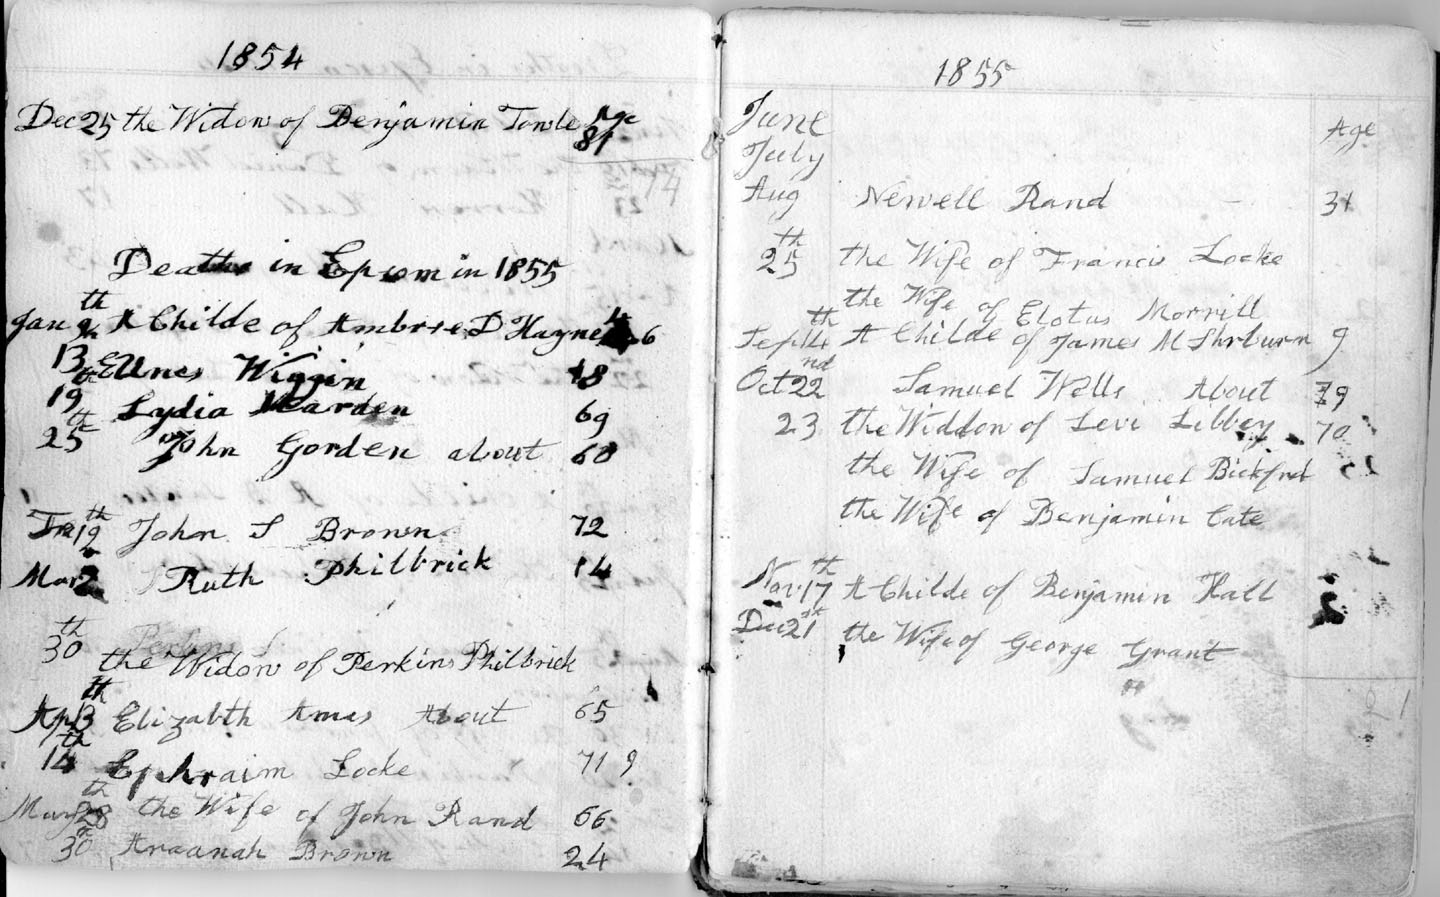 1854
Age
Dec 25 the Widow of Benjamin Towle 81
Deaths in Epsom in 1855
Jan 9th A Childe of Ambrse D Haynes 6
13th Wiggin 18
19th Lydia Warden 69
25 John Gorden about 60
19th John S Brown 72
Mar 2 Ruth Philbrick 14
30th the Widow of Perkins Philbrick
Ap 13th Elizabth Ames About 65
14th Ephraim Locke 71 9
May 28th the Wife of John Rand 66
30th Araanah Brown 24
1855
June Age
July
Aug Newell Rand 31
25th the Wife of Francis Locke
the Wife of Elotus Morrill
Sept 14th A Childe of James M Shrburn 9
Oct 22nd Samuel Wells About 79
23 the Widdow of Levi Libbey 70
the Wife of Samuel Bickford
the Wife of Benjamin Cate
Nov 17th A Childe of Benjamin Hall 2
Dec 21st the Wife of George Grant
21